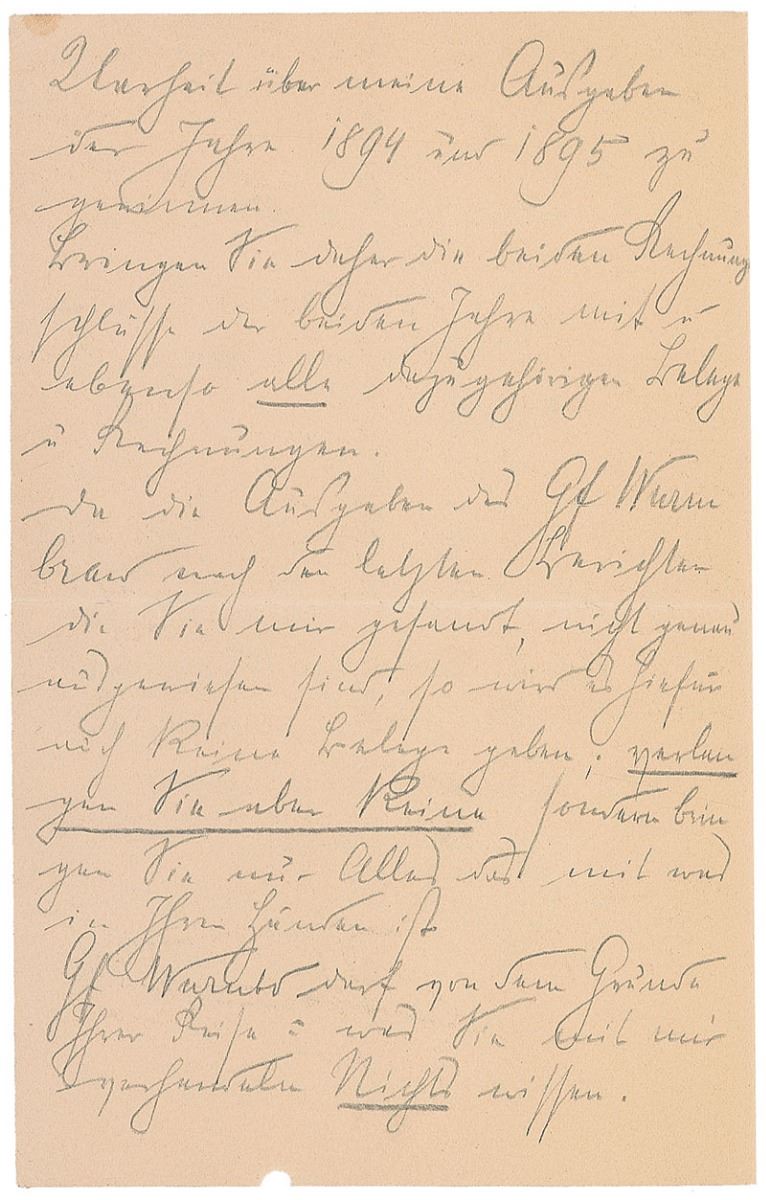 Klarheit über meine Ausgaben
der Jahre 1894 und 1895 zu
gewinnen.
Bringen Sie daher die beiden Rechnungs
schlüsse der beiden Jahre mit u
ebenso alle dazugehörigen Belege
u Rechnungen.
Da die Ausgaben des Gf Wurm
brand nach den letzten Berichten
die Sie mir gesandt, nicht genau
ausgewiesen sind, so wird es hiefür
auch keine Belege geben; verlan
gen Sie aber keine sondern brin
gen Sie nur Alles das mit was
in Ihren Händen ist
Gf Wurmbd darf von dem Grunde
Ihrer Reise u was Sie mit mir
verhandeln Nichts wissen.